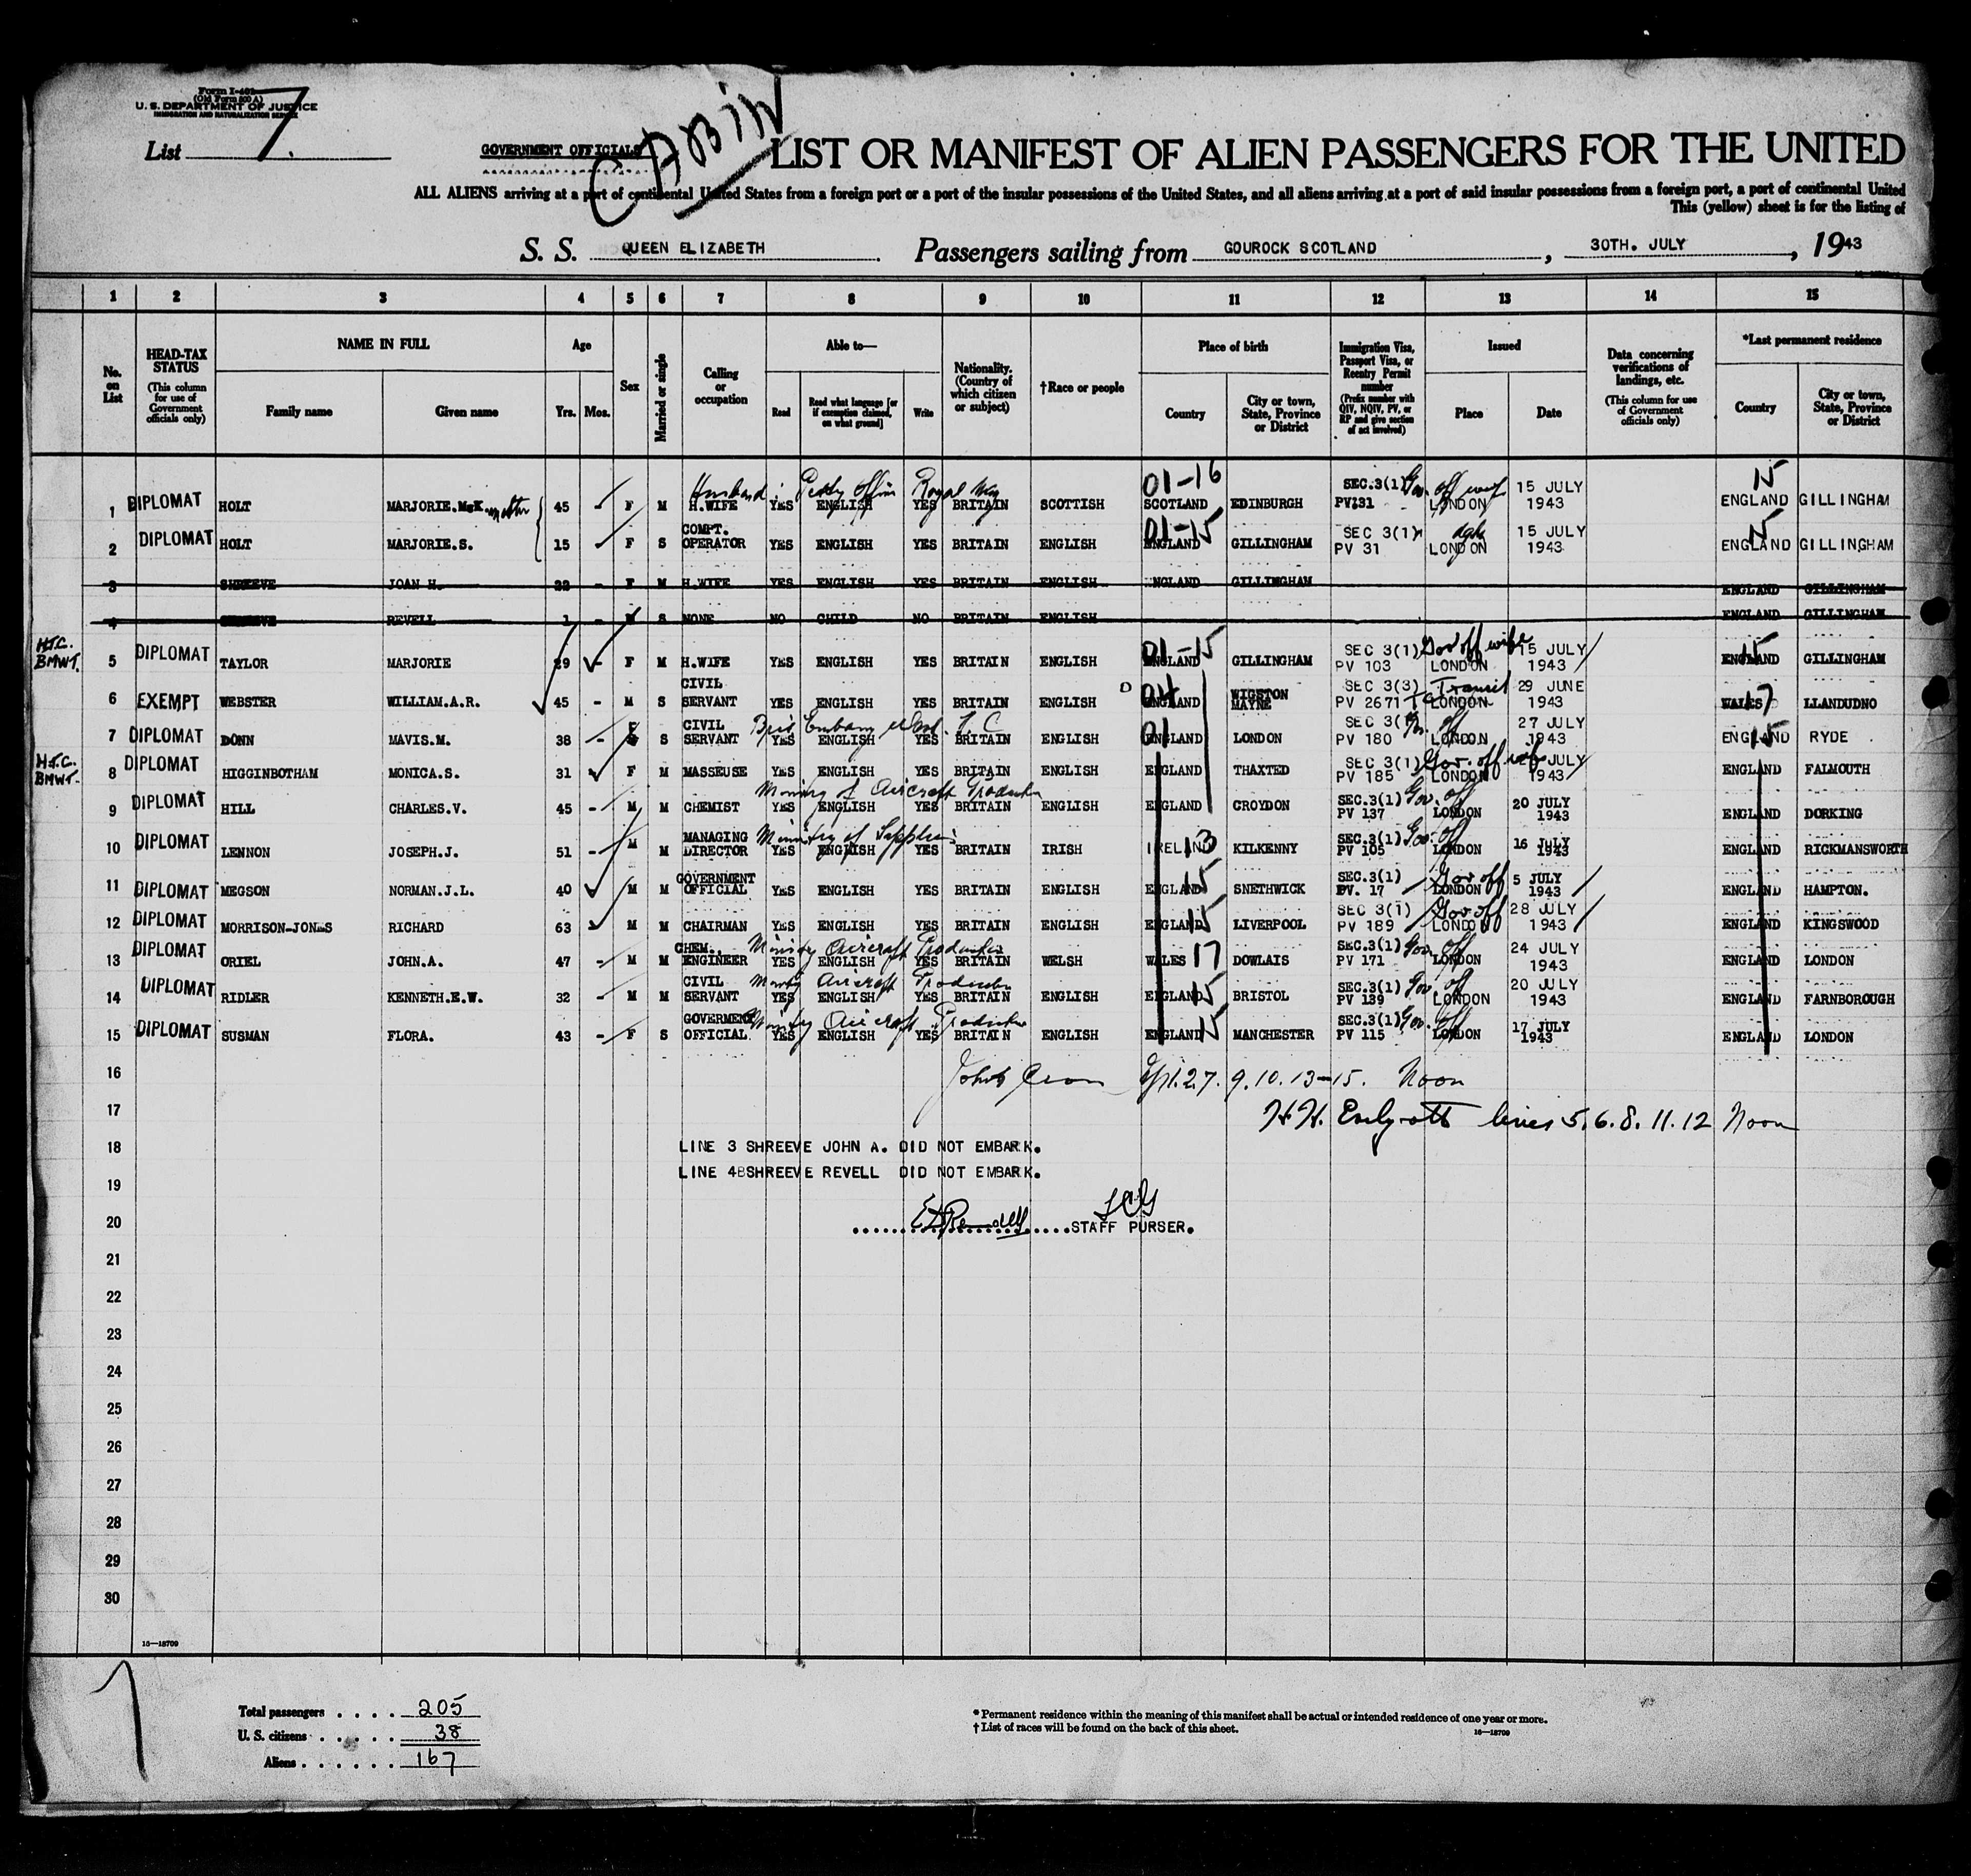 Form I-402
(Old Form 500 A)
U. S. DEPARTMENT OF JUSTICE
IMMIGRATION AND NATURALIZATION SERVICE
List 7.
GOVERNMENT OFFICIALS
CABIN
LIST OR MANIFEST OF ALIEN PASSENGERS FOR THE UNITED
ALL ALIENS arriving at a port of continental United States from a foreign port or a port of the insular possessions of the United States, and all aliens arriving at a port of said insular possessions from a foreign port, a port of continental United
This (yellow) sheet is for the listing of
S. S. QUEEN ELIZABETH Passengers sailing from GOUROCK SCOTLAND, 30TH. JULY, 1943
1 2 3 4 5 6 7 8 9 10 11 12 13 14 15
No. on List
HEAD-TAX STATUS (This column for use of Government officials only)
NAME IN FULL Family name Given name
Age Yrs. Mos.
Sex
Married or single
Calling or occupation
Able to— Read Read what language [or if exemption claimed, on what ground] Write
Nationality. (Country of which citizen or subject)
†Race or people
Place of birth Country City or town, State, Province or District
Immigration Visa, Passport Visa, or Reentry Permit number (Prefix number with QIV, NQIV, PV, or RP and give section of act involved)
Issued Place Date
Data concerning verifications of landings, etc. (This column for use of Government officials only)
*Last permanent residence Country City or town, State, Province or District
Husband: Petty Officer Royal Navy 01-16 15
1 DIPLOMAT HOLT MARJORIE.McK. mother 45 - F M H.WIFE YES ENGLISH YES BRITAIN SCOTTISH SCOTLAND EDINBURGH SEC.3(1) PV 31 Gov. off wife LONDON 15 JULY 1943 ENGLAND GILLINGHAM
01-15 15
2 DIPLOMAT HOLT MARJORIE.S. 15 F S COMPT. OPERATOR YES ENGLISH YES BRITAIN ENGLISH ENGLAND GILLINGHAM SEC 3(1) PV 31 LONDON 15 JULY 1943 ENGLAND GILLINGHAM
3 SHREEVE JOAN H. 22 - F M H.WIFE YES ENGLISH YES BRITAIN ENGLISH ENGLAND GILLINGHAM ENGLAND GILLINGHAM
4 SHREEVE REVELL 1 - S NONE NO CHILD NO BRITAIN ENGLISH ENGLAND GILLINGHAM
H.J.C. BMWT. 5 DIPLOMAT TAYLOR MARJORIE 29 F M H.WIFE YES ENGLISH YES BRITAIN ENGLISH 01-15 ENGLAND GILLINGHAM SEC 3(1) PV 103 Gov off wife LONDON 15 JULY 1943 15 ENGLAND GILLINGHAM
6 EXEMPT WEBSTER WILLIAM.A.R. 45 - M S CIVIL SERVANT YES ENGLISH YES BRITAIN ENGLISH 04 ENGLAND WIGSTON MAYNE SEC 3(3) PV 2671 Transit LONDON 29 JUNE 1943 17 WALES LLANDUDNO
7 DIPLOMAT DONN MAVIS.M. 38 - F S CIVIL SERVANT YES ENGLISH YES BRITAIN ENGLISH 01 ENGLAND LONDON SEC 3(1) PV 180 Gov. off LONDON 27 JULY 1943 15 ENGLAND RYDE
H.J.C. BMWT. 8 DIPLOMAT HIGGINBOTHAM MONICA.S. 31 F M MASSEUSE YES ENGLISH YES BRITAIN ENGLISH ENGLAND THAXTED SEC 3(1) PV 185 Gov. off wife LONDON JULY 1943 ENGLAND FALMOUTH
Ministry of Aircraft Production
9 DIPLOMAT HILL CHARLES.V. 45 - M M CHEMIST YES ENGLISH YES BRITAIN ENGLISH ENGLAND CROYDON SEC.3(1) PV 137 Gov. off LONDON 20 JULY 1943 ENGLAND DORKING
Ministry of Supplies
10 DIPLOMAT LENNON JOSEPH.J. 51 - M M MANAGING DIRECTOR YES ENGLISH YES BRITAIN IRISH IRELAND 13 KILKENNY SEC.3(1) PV 105 Gov. off LONDON 16 JULY 1943 ENGLAND RICKMANSWORTH
11 DIPLOMAT MEGSON NORMAN.J.L. 40 M M GOVERNMENT OFFICIAL YES ENGLISH YES BRITAIN ENGLISH ENGLAND 15 SNETHWICK SEC.3(1) PV. 17 Gov off LONDON 5 JULY 1943 ENGLAND HAMPTON.
12 DIPLOMAT MORRISON-JONES RICHARD 63 M M CHAIRMAN YES ENGLISH YES BRITAIN ENGLISH ENGLAND 15 LIVERPOOL SEC 3(1) PV 189 Gov off LONDON 28 JULY 1943 ENGLAND KINGSWOOD
Ministry Aircraft Production
13 DIPLOMAT ORIEL JOHN.A. 47 - M M CHEM. ENGINEER YES ENGLISH YES BRITAIN WELSH WALES 17 DOWLAIS SEC.3(1) PV 171 Gov. off LONDON 24 JULY 1943 ENGLAND LONDON
Ministry Aircraft Production
14 DIPLOMAT RIDLER KENNETH.E.W. 32 - M M CIVIL SERVANT YES ENGLISH YES BRITAIN ENGLISH ENGLAND 15 BRISTOL SEC.3(1) PV 139 Gov. off LONDON 20 JULY 1943 ENGLAND FARNBOROUGH
Ministry Aircraft Production
15 DIPLOMAT SUSMAN FLORA. 43 - F S GOVERMENT OFFICIAL YES ENGLISH YES BRITAIN ENGLISH ENGLAND 15 MANCHESTER SEC.3(1) PV 115 Gov. off LONDON 17 JULY 1943 ENGLAND LONDON
16 1.2.7. 9.10.13-15. Noon
17 H.H. lines 5.6.8.11.12 Noon
18 LINE 3 SHREEVE JOHN A. DID NOT EMBARK.
LINE 4 SHREEVE REVELL DID NOT EMBARK.
19
20 STAFF PURSER.
21
22
23
24
25
26
27
28
29
30
16—18709
Total passengers . . . . 205
U. S. citizens . . . . . 38
Aliens . . . . . . 167
* Permanent residence within the meaning of this manifest shall be actual or intended residence of one year or more.
† List of races will be found on the back of this sheet. 16—18709